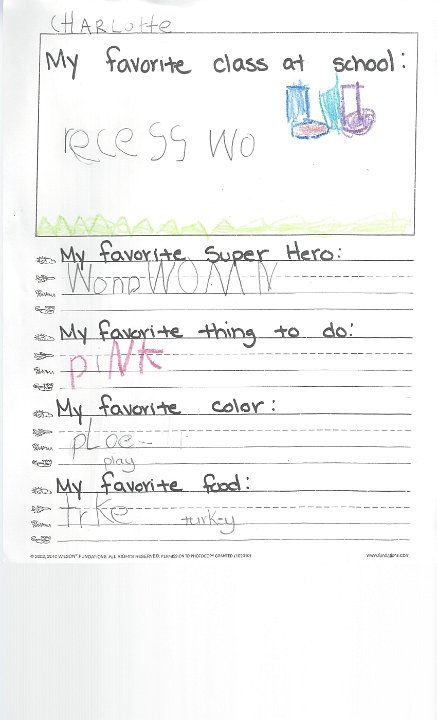 CHARLOtte
My favorite class at school:
recess wo
My favorite Super Hero:
WonDWOMN
My favorite thing to do:
piNk
My favorite color:
pLae
play
My favorite food:
trke
turkey
© 2002, 2010 WILSON FUNDATIONS. ALL RIGHTS RESERVED. PERMISSION TO PHOTOCOPY GRANTED
www.fundations.com